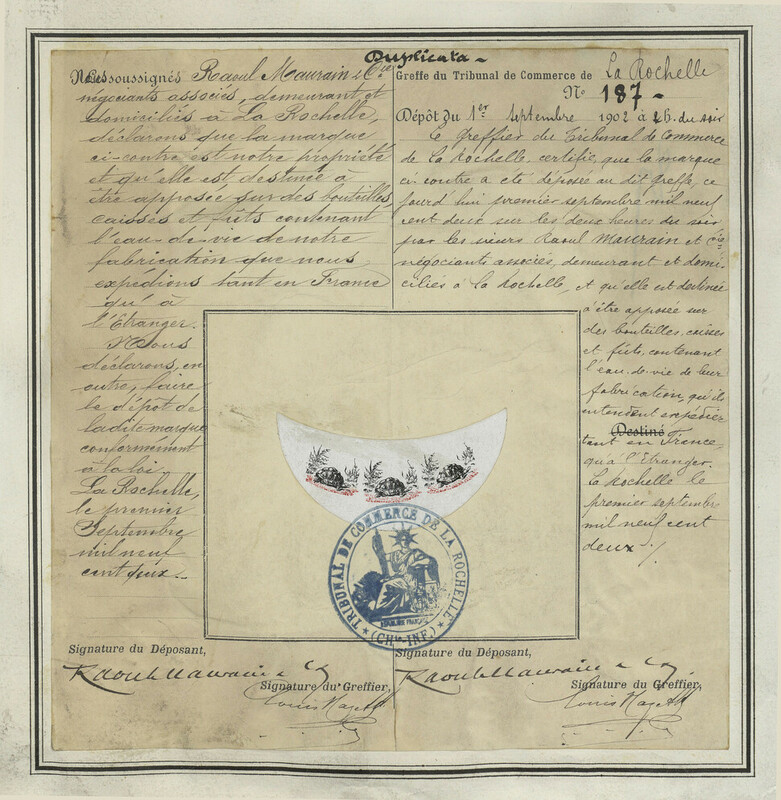 Duplicata -
Nous soussignés Raoul Maurain & Cie
négociants associés, demeurant et
domiciliés à La Rochelle,
déclarons que la marque
ci-contre est notre propriété
et qu'elle est destinée à
être apposée sur des bouteilles,
caisses et fûts contenant
l'eau-de-vie de notre
fabrication que nous
expédions tant en France
qu'à
l'Etranger.
Nous
déclarons, en
outre, faire
le dépôt de
ladite marque
conformément
à la loi.
La Rochelle,
le premier
Septembre
mil neuf
cent deux.
Greffe du Tribunal de Commerce de La Rochelle
No 187 -
Dépôt du 1er Septembre 1902 à 2h. du soir
Le Greffier du Tribunal de Commerce
de La Rochelle, certifie, que la marque
ci-contre a été déposée au dit Greffe, ce
jourd'hui premier septembre mil neuf
cent deux sur les deux heures du soir
par les sieurs Raoul Maurain et Cie
négociants associés, demeurant et domi-
ciliés à la Rochelle, et qu'elle est destinée
à être apposée sur
des bouteilles, caisses
et fûts, contenant
l'eau-de-vie de leur
fabrication, qu'ils
entendent expédier
Destiné
tant en France,
qu'à l'Etranger.
La Rochelle le
premier septembre
mil neuf cent
deux ./.
TRIBUNAL DE COMMERCE DE LA ROCHELLE
RÉPUBLIQUE FRANÇAISE
(CHte-INF.)
Signature du Déposant,
Raoul Maurain & Cie
Signature du Greffier,
Louis
Signature du Déposant,
Raoul Maurain & Cie
Signature du Greffier,
Louis